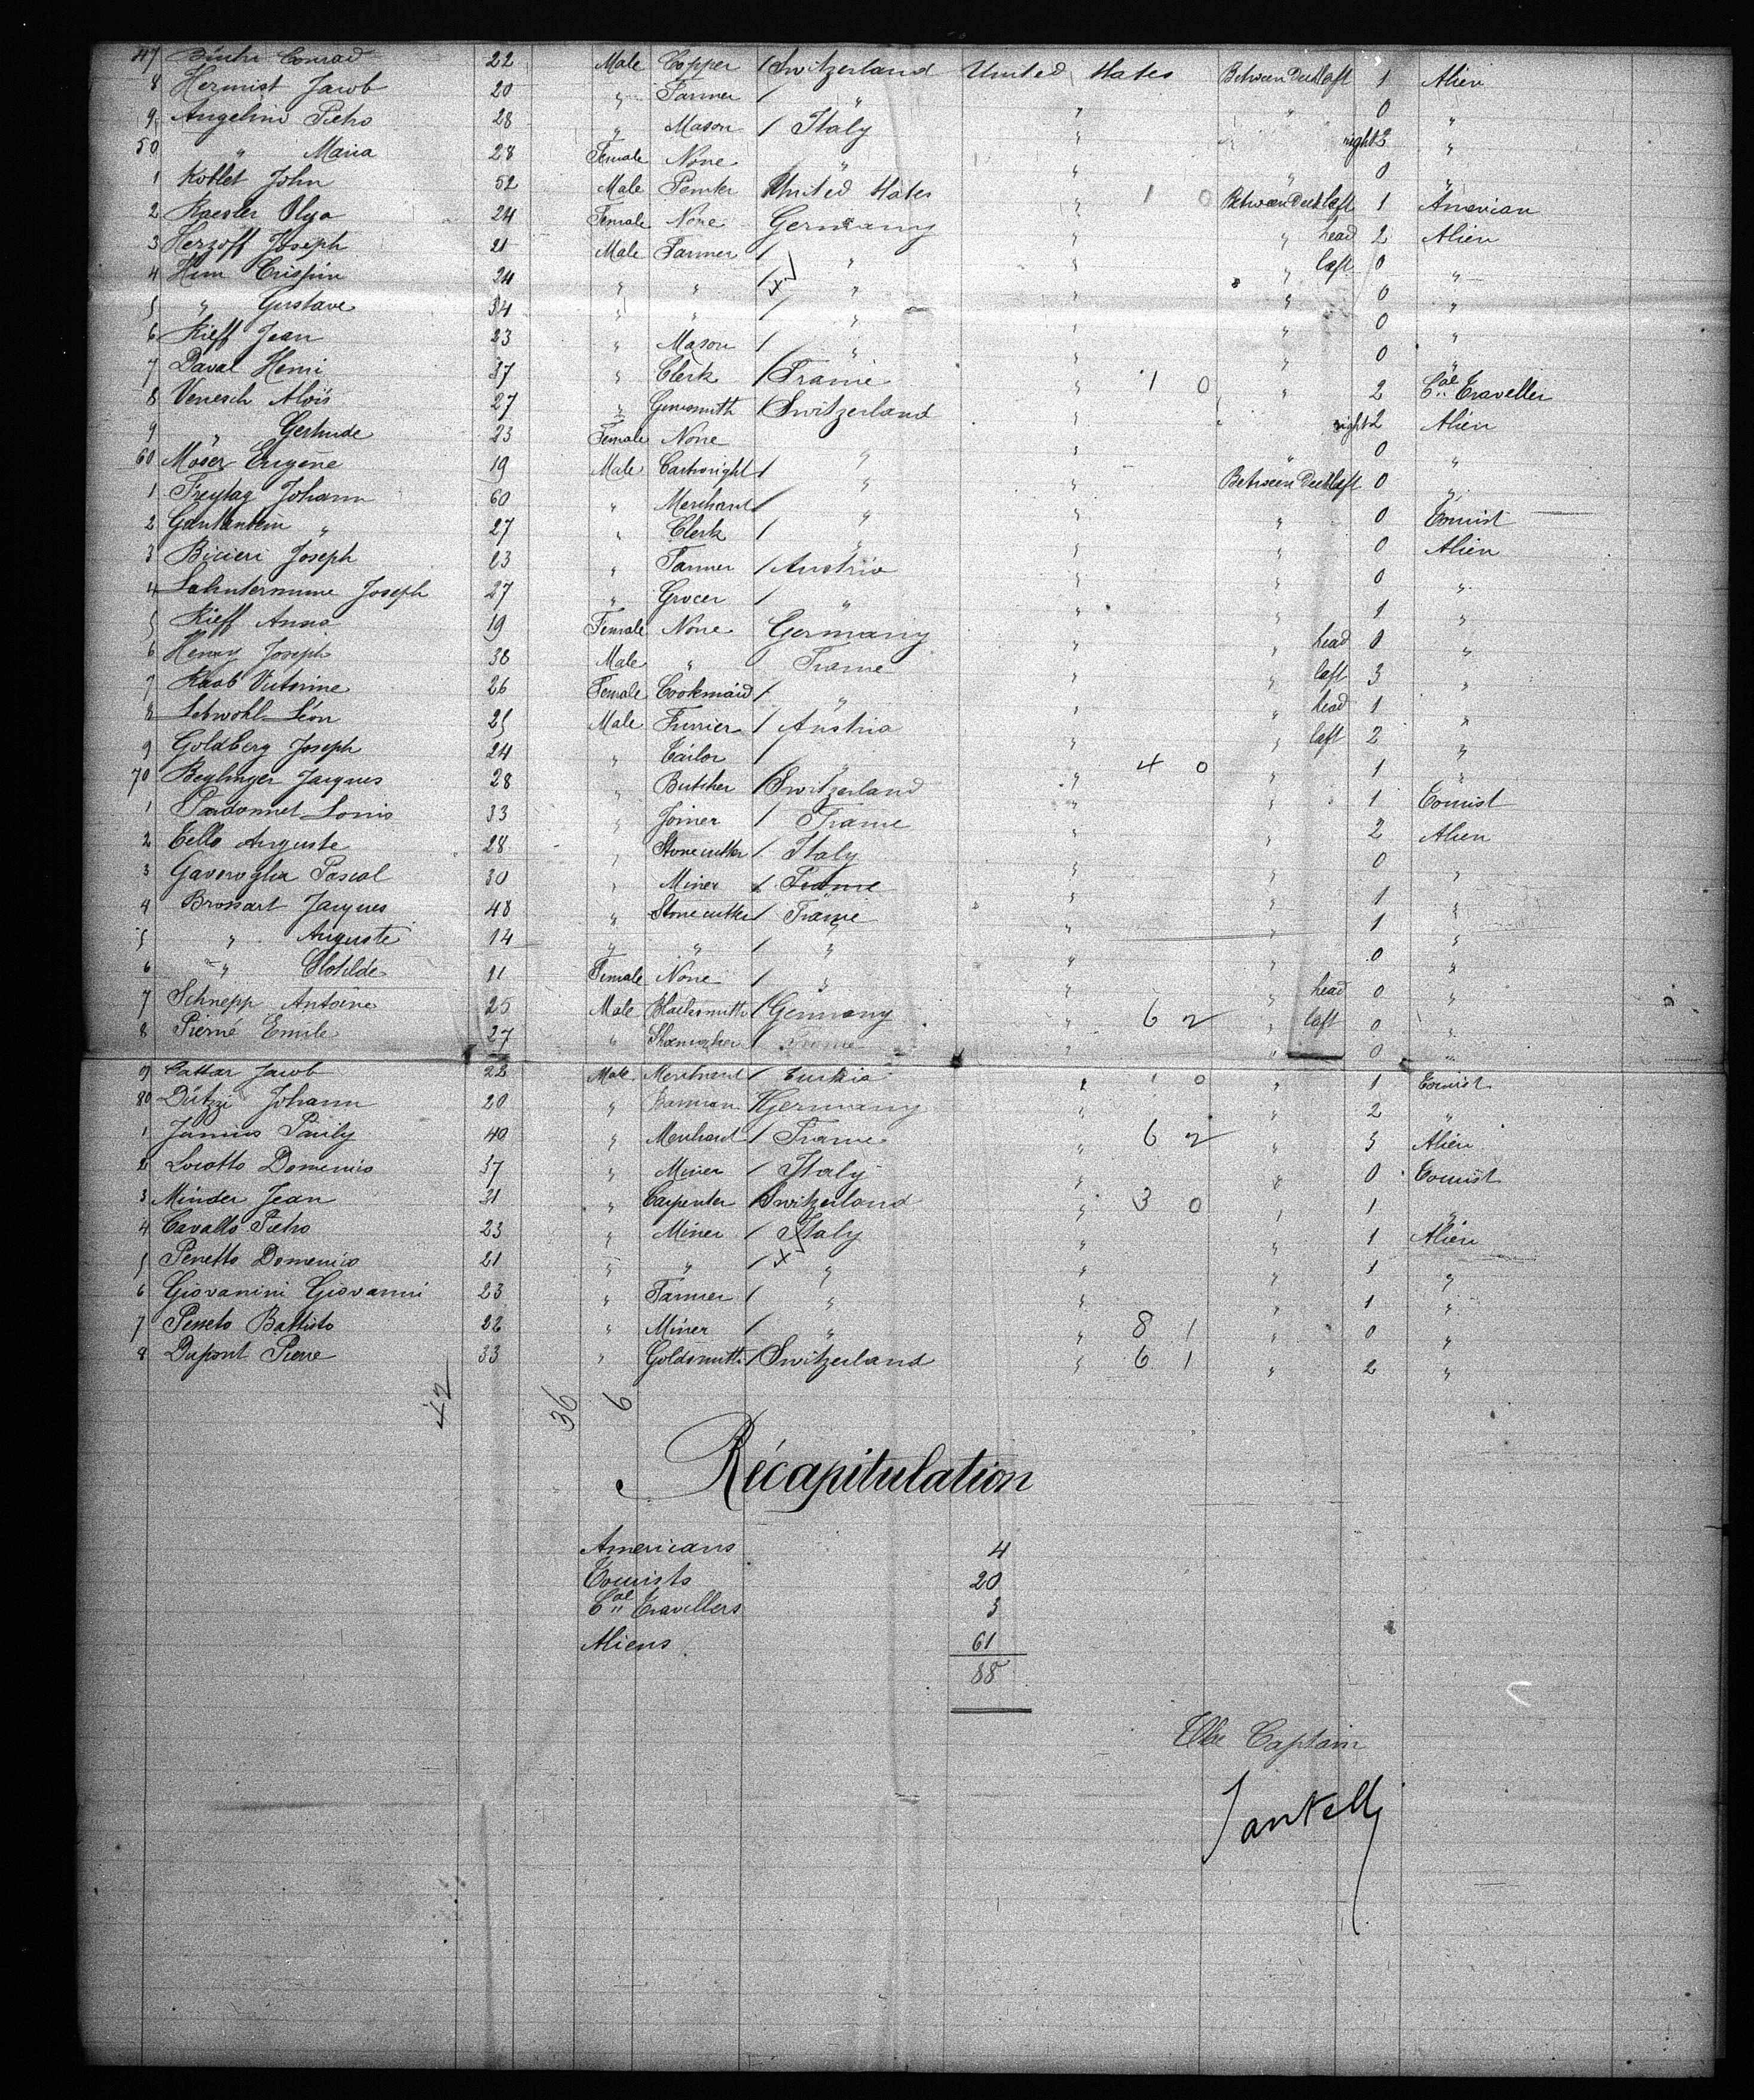 47 Conrad 22 Male Copper / Switzerland United States Between Deck laft 1 Alien
8 Hermist Jacob 20 " Farmer / " " " 0 "
9 Angelino Pietro 28 " Mason / Italy " " right 2 "
50 " Maria 28 Female None " " " 0 "
1 Koblet John 52 Male United States " 1 0 Between Deck laft 1
2 Kaesler Olga 24 Female None Germany " " head 2 Alien
3 Herzoff Joseph 21 Male Farmer / " " " laft 0 "
4 Him Crispin 24 " " / " " " 0 "
5 " Gustave 34 " " / " " " 0 "
6 Kieff Jean 23 " Mason / " " " 0 "
7 Daval Henri 37 " Clerk / France " 1 0 " 2 Cal Traveller
8 Venesch Aloïs 27 " Gunsmith / Switzerland " " right 2 Alien
9 " Gertrude 23 Female None " " " 0 "
60 Moser Eugene 19 Male Cartwright / " " Between Deck laft 0 "
1 Freytag Johann 60 " Merchant / " " " 0 Tourist
2 Gantenbein " 27 " Clerk / " " " 0 Alien
3 Bicieri Joseph 23 " Farmer / Austria " " 0 "
4 Joseph 27 " Grocer / " " " 1 "
5 Kieff Anna 19 Female None Germany " " head 0 "
6 Henry Joseph 38 Male " France " " laft 3 "
7 Raab Victorine 26 Female Cookmaid / " " " head 1 "
8 Lebwohl Léon 25 Male Furrier / Austria " " laft 2 "
9 Goldberg Joseph 24 " Tailor / " " 4 0 " 1 "
70 Beglinger Jacques 28 " Butcher / Switzerland " " 1 Tourist
1 Parbonnet Louis 33 " Joiner / France " " 2 Alien
2 Tello Auguste 28 " Stone cutter / Italy " " 0 "
3 Pascal 30 " Miner / France " " 1 "
4 Brossart Jacques 48 " Stone cutter / France " " 1 "
5 " Auguste 14 " " / " " " 0 "
6 " Clotilde 11 Female None / " " " head 0 "
7 Schnepp Antoine 25 Male Blacksmith / Germany " 6 2 " laft 0 "
8 Pierné Emile 27 " Shoemaker / France " " 0 "
9 Cattar Jacob 22 Male Merchant / " 1 0 " 1 Tourist
80 Dützi Johann 20 " Barman / Germany " " 2 "
1 Junius Pauly 40 " Merchant / France " 6 2 " 3 Alien
2 Locatto Domenico 37 " Miner / Italy " " 0 Tourist
3 Minder Jean 31 " Carpenter / Switzerland " 3 0 " 1 "
4 Cavallo Pietro 23 " Miner / Italy " " 1 Alien
5 Penetto Domenico 21 " " / " " " 1 "
6 Giovanini Giovanni 23 " Farmer / " " " 1 "
7 Battisto 22 " Miner / " " 8 1 " 0 "
8 Dupont Pierre 33 " Goldsmith / Switzerland " 6 1 " 2 "
42 36 6
Récapitulation
Americans 4
Tourists 20
Cal Travellers 3
Aliens 61
88
The Captain